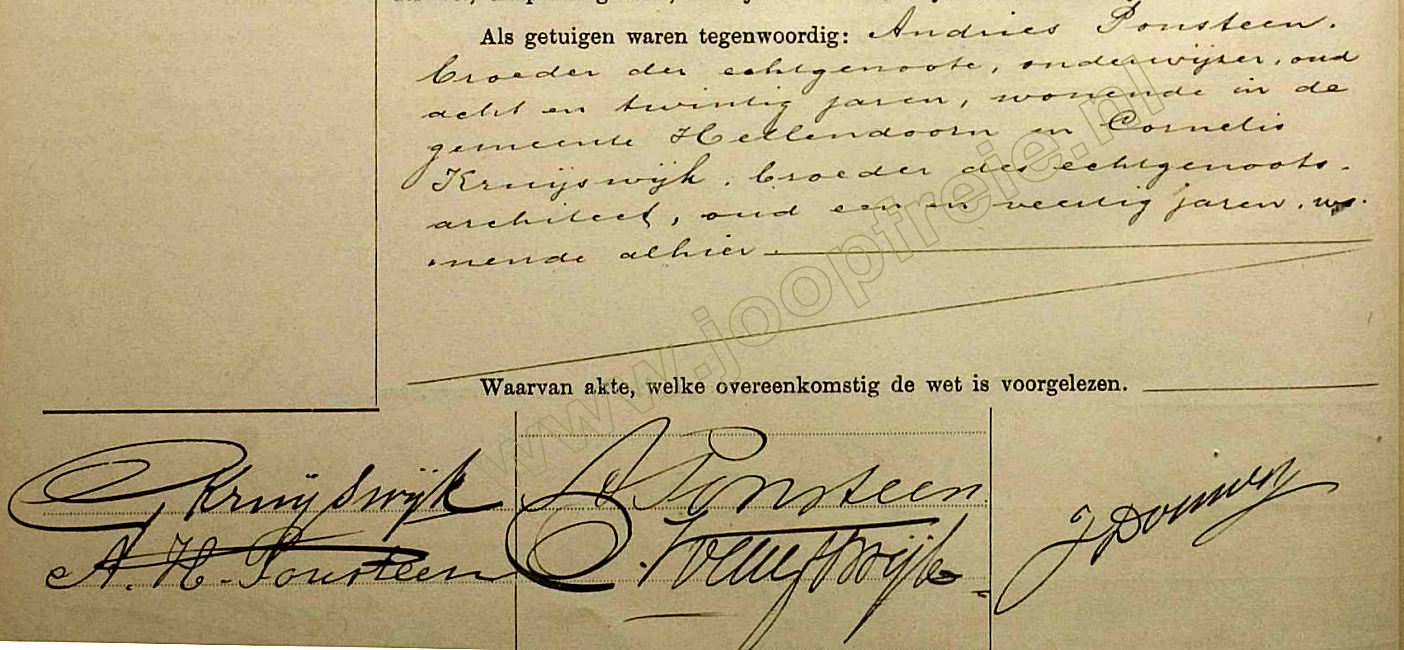 Als getuigen waren tegenwoordig: Andries Ponsteen.
broeder der echtgenoote, onderwijzer, oud
acht en twintig jaren, wonende in de
gemeente Hellendoorn en Cornelis
Kruijswijk, broeder des echtgenoots.
architect, oud een en veertig jaren, wo-
nende alhier.
Waarvan akte, welke overeenkomstig de wet is voorgelezen.
G Kruijswijk
A Ponsteen
A. H. Ponsteen
C. Kruijswijk
www.joopfreie.nl